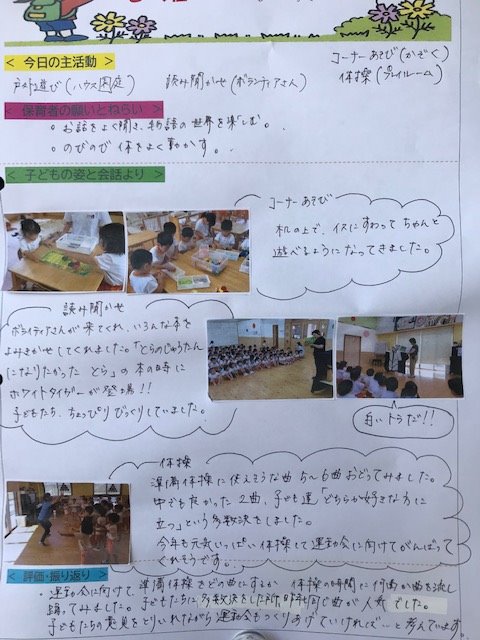 <今日の主活動>
コーナーあそび(かぞく)
戸外遊び(ハウス園庭) 読み聞かせ(ボランティアさん) 体操(プレイルーム)
<保育者の願いとねらい>
。お話をよく聞き、物語の世界を楽しむ。
。のびのび体をよく動かす。
<子どもの姿と会話より>
コーナーあそび
机の上で、イスにすわってちゃんと
遊べるようになってきました。
読み聞かせ
ボランティアさんが来てくれ、いろんな本を
よみきかせしてくれました。「とらのじゅうたん
になりたかった とら」の本の時に
ホワイトタイガーが登場!!
子どもたち、ちょっぴりびっくりしていました。
白いトラだ!!
体操
準備体操に使えそうな曲 5〜6曲おどってみました。
中でも良かった2曲、子ども達「どちらが好きな方に
立つ」という多数決をしました。
今年も元気いっぱい体操して運動会に向けてがんばって
くれそうです。
<評価・振り返り>
。運動会に向けて、準備体操をどの曲にするか 体操の時間に何曲か曲を流し
踊ってみました。子どもたちに多数決をした所、同じ曲が人気でした。
子どもたちの意見をとりいれながら運動会もつくりあげていければ…と考えています。